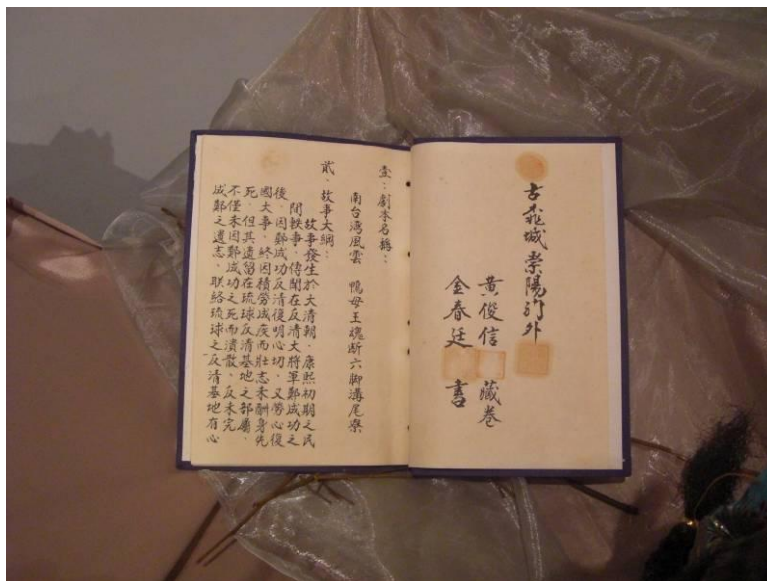 古堯城崇陽郊外
黃俊信 藏卷
金春廷 書
壹：劇本名稱：
南台灣風雲 鴨母王魂斷六腳溝尾寮
貳．故事大綱：
故事發生於大清朝．康熙初期之民
間軼事．傳聞在反清大將軍鄭成功之
後．因鄭成功反清復明心切．又勞心復
國大事．終因積勞成疾而壯志未酬身先
死．但其遺留在琉球反清基地之部屬．
不僅未因鄭成功之死而潰散．反未完
成鄭之遺志．聯絡琉球之反清基地有心